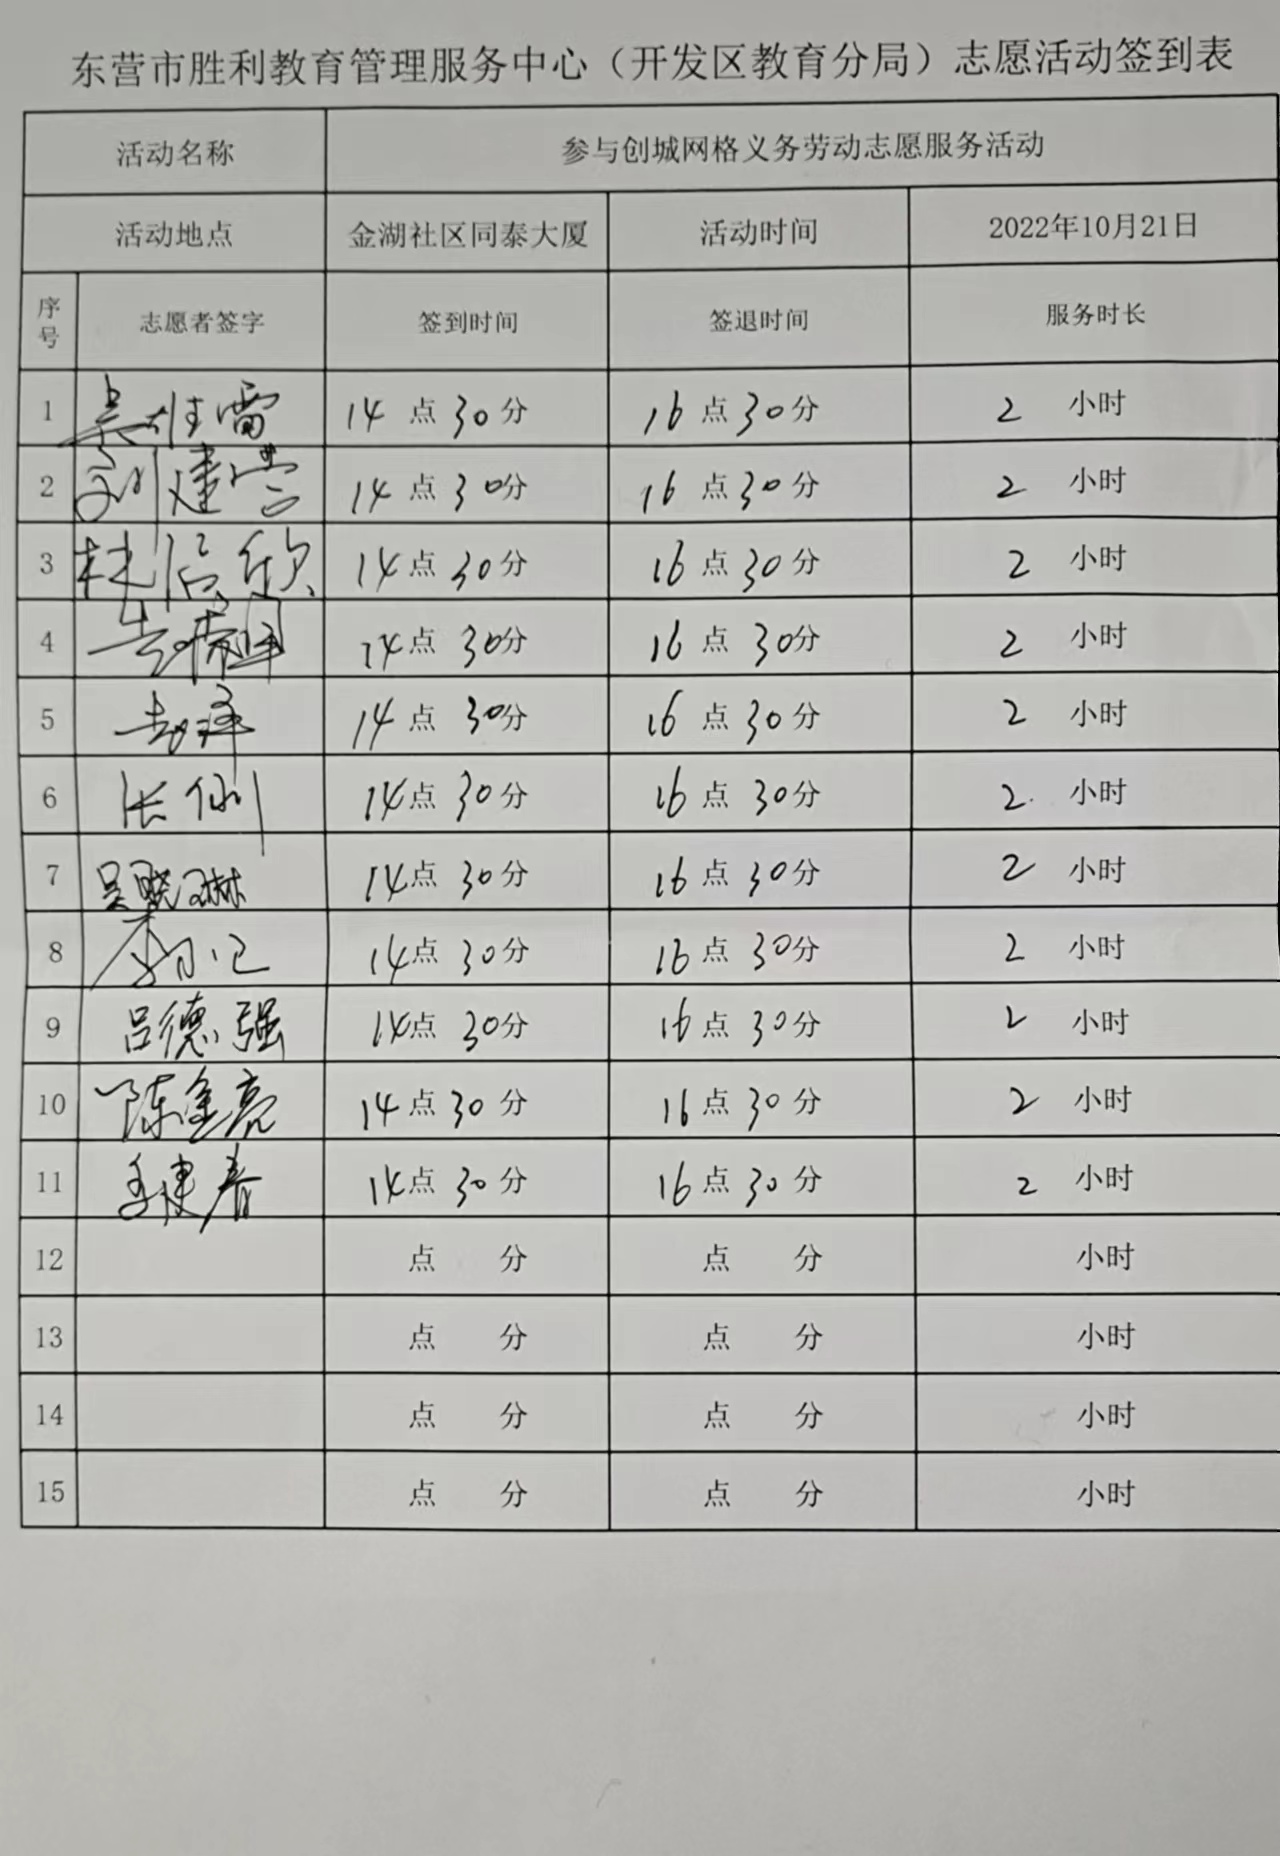 东营市胜利教育管理服务中心（开发区教育分局）志愿活动签到表
活动名称 参与创城网格义务劳动志愿服务活动
活动地点 金湖社区同泰大厦 活动时间 2022年10月21日
序号 志愿者签字 签到时间 签退时间 服务时长
1 14点30分 16点30分 2小时
2 刘建营 14点30分 16点30分 2小时
3 杜信欣 14点30分 16点30分 2小时
4 14点30分 16点30分 2小时
5 14点30分 16点30分 2小时
6 张 14点30分 16点30分 2小时
7 吴晓琳 14点30分 16点30分 2小时
8 14点30分 16点30分 2小时
9 吕德强 14点30分 16点30分 2小时
10 陈金亮 14点30分 16点30分 2小时
11 李建春 14点30分 16点30分 2小时
12 点 分 点 分 小时
13 点 分 点 分 小时
14 点 分 点 分 小时
15 点 分 点 分 小时